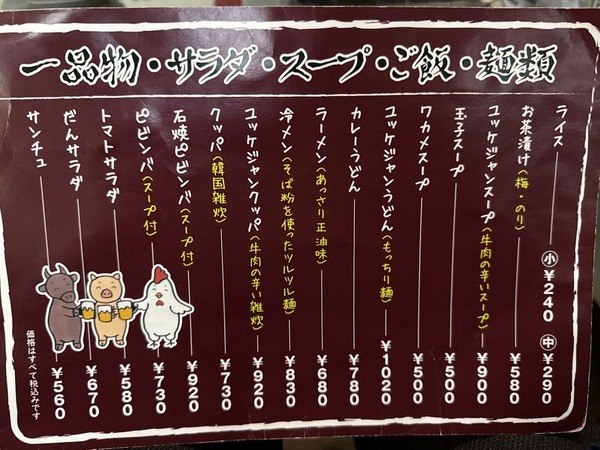 一品物・サラダ・スープ・ご飯・麺類
ライス 小 ¥240 中 ¥290
お茶漬け(梅・のり) ¥580
ユッケジャンスープ(牛肉の辛いスープ) ¥900
玉子スープ ¥500
ワカメスープ ¥500
ユッケジャンうどん(もっちり麺) ¥1020
カレーうどん ¥780
ラーメン(あっさり正油味) ¥680
冷メン(そば粉を使ったツルツル麺) ¥830
ユッケジャンクッパ(牛肉の辛い雑炊) ¥920
クッパ(韓国雑炊) ¥730
石焼ピビンバ(スープ付) ¥920
ピビンバ(スープ付) ¥730
トマトサラダ ¥580
だんサラダ ¥670
サンチュ ¥560
価格はすべて税込みです